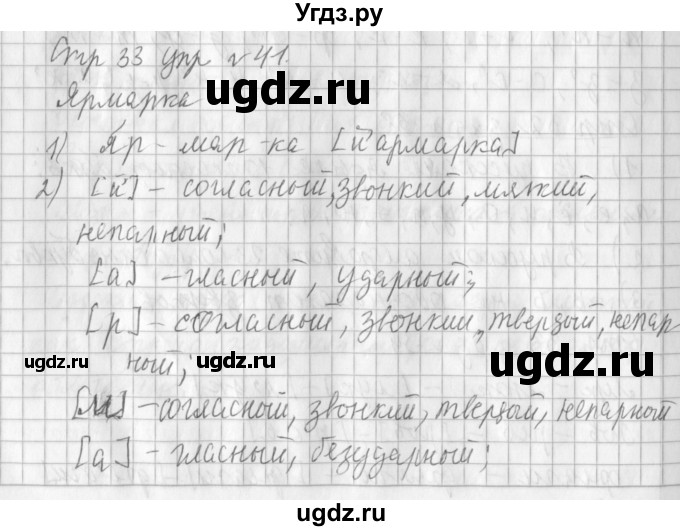 Угдз.ру
Стр 33 упр №41.
Ярмарка
ugdz.ru
1) Яр-мар-ка [й'армарка]
2) [й'] - согласный, звонкий, мягкий,
непарный;
[а] - гласный, ударный;
[р] - согласный, звонкий, твердый, непар
ugdz.ru ный; ugdz.ru ugdz.ru
[м] - согласный, звонкий, твердый, непарный
[а] - гласный, безударный;
ugdz.ru
©ugdz.ru